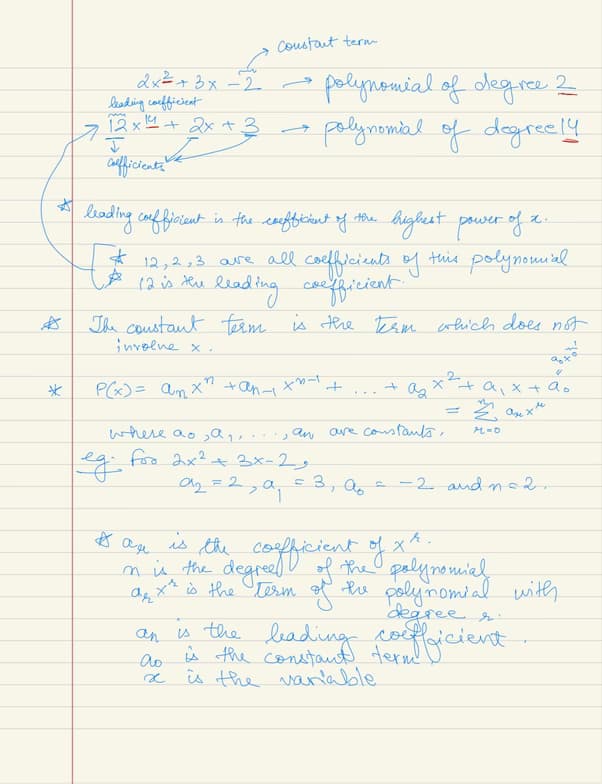 constant term
2x² + 3x − 2 → polynomial of degree 2
leading coefficient
12x¹⁴ + 2x + 3 → polynomial of degree 14
coefficients
☆ leading coefficient is the coefficient of the highest power of x.
☆ 12, 2, 3 are all coefficients of this polynomial
☆ 12 is the leading coefficient.
☆ The constant term is the term which does not
involve x.
a₀x⁰
* P(x) = aₙxⁿ + aₙ₋₁xⁿ⁻¹ + ... + a₂x² + a₁x + a₀
= Σⁿᵣ₌₀ aᵣxʳ
where a₀, a₁, ...., aₙ are constants.
eg. For 2x² + 3x − 2,
a₂ = 2, a₁ = 3, a₀ = −2 and n = 2.
☆ aᵣ is the coefficient of xʳ.
n is the degree of the polynomial
aᵣxʳ is the term of the polynomial with
degree r.
aₙ is the leading coefficient.
a₀ is the constant term
x is the variable